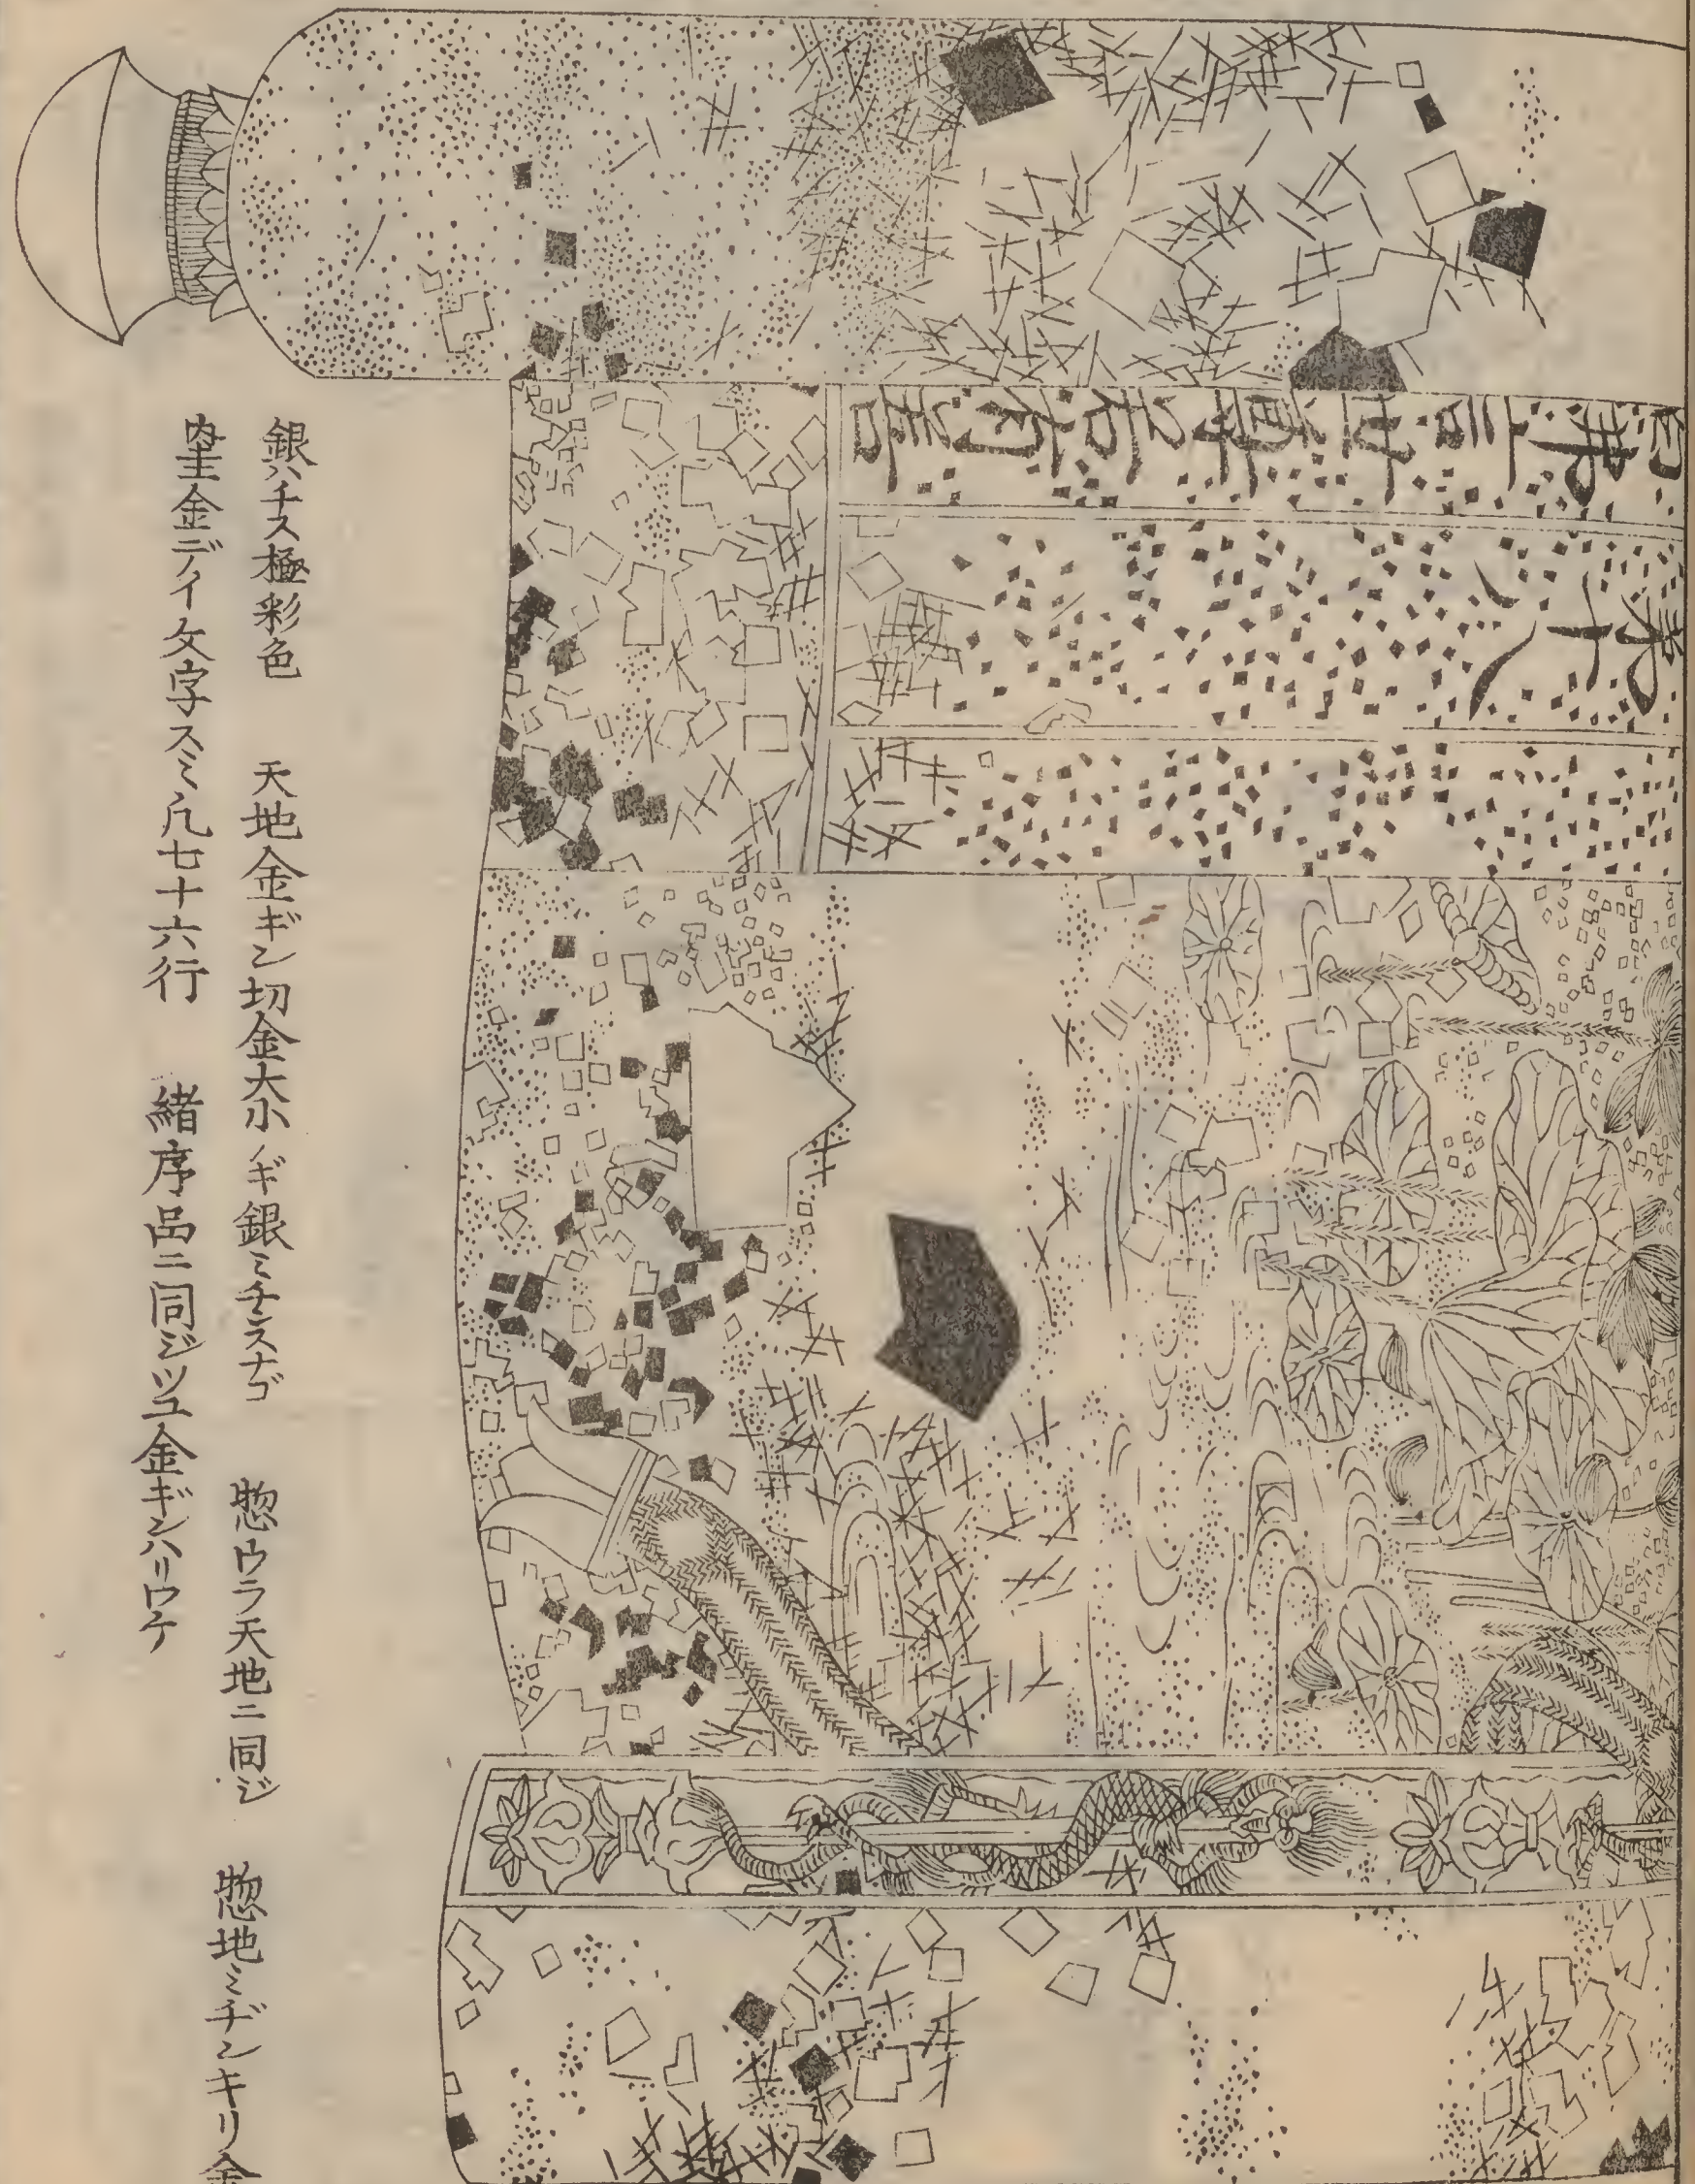 第十八
白佛言世尊若有善
銀ハチス極彩色　天地金ギン切金大小ノギ銀ミヂンスナゴ　惣ウラ天地ニ同ジ　惣地ミヂンキリ金
罫金デイ文字スミ凡七十六行　緒序品ニ同ジツユ金ギンハリワケ